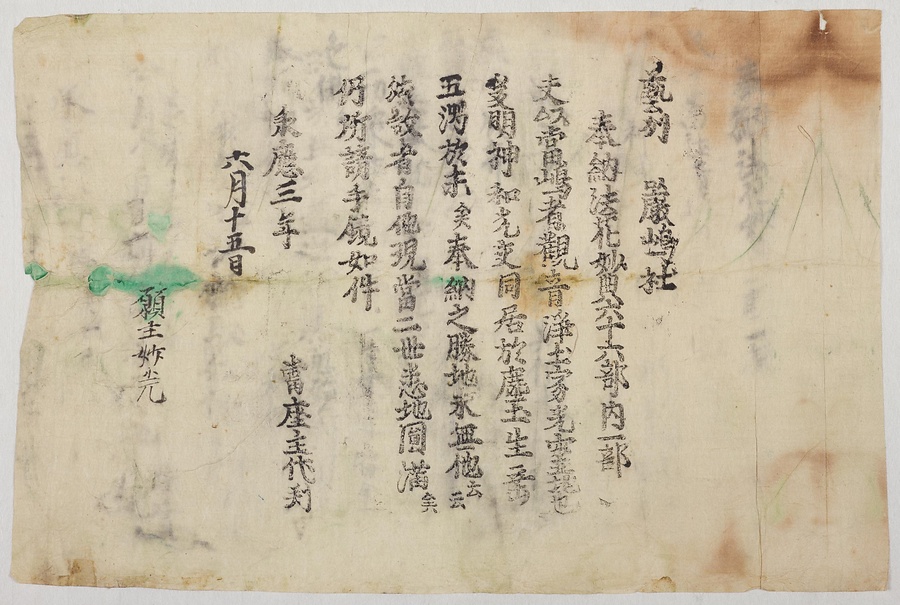 藝州 嚴嶋社
奉納法花妙典六十六部内一部
夫以當嶋者觀音淨土
明神和光交同居於塵
五濁於末矣奉納之勝地永無他云云
然故者自他現當二世悉地圓滿矣
仍所請手鏡如件
永應三年
當座主代判
六月十五日
願主妙光